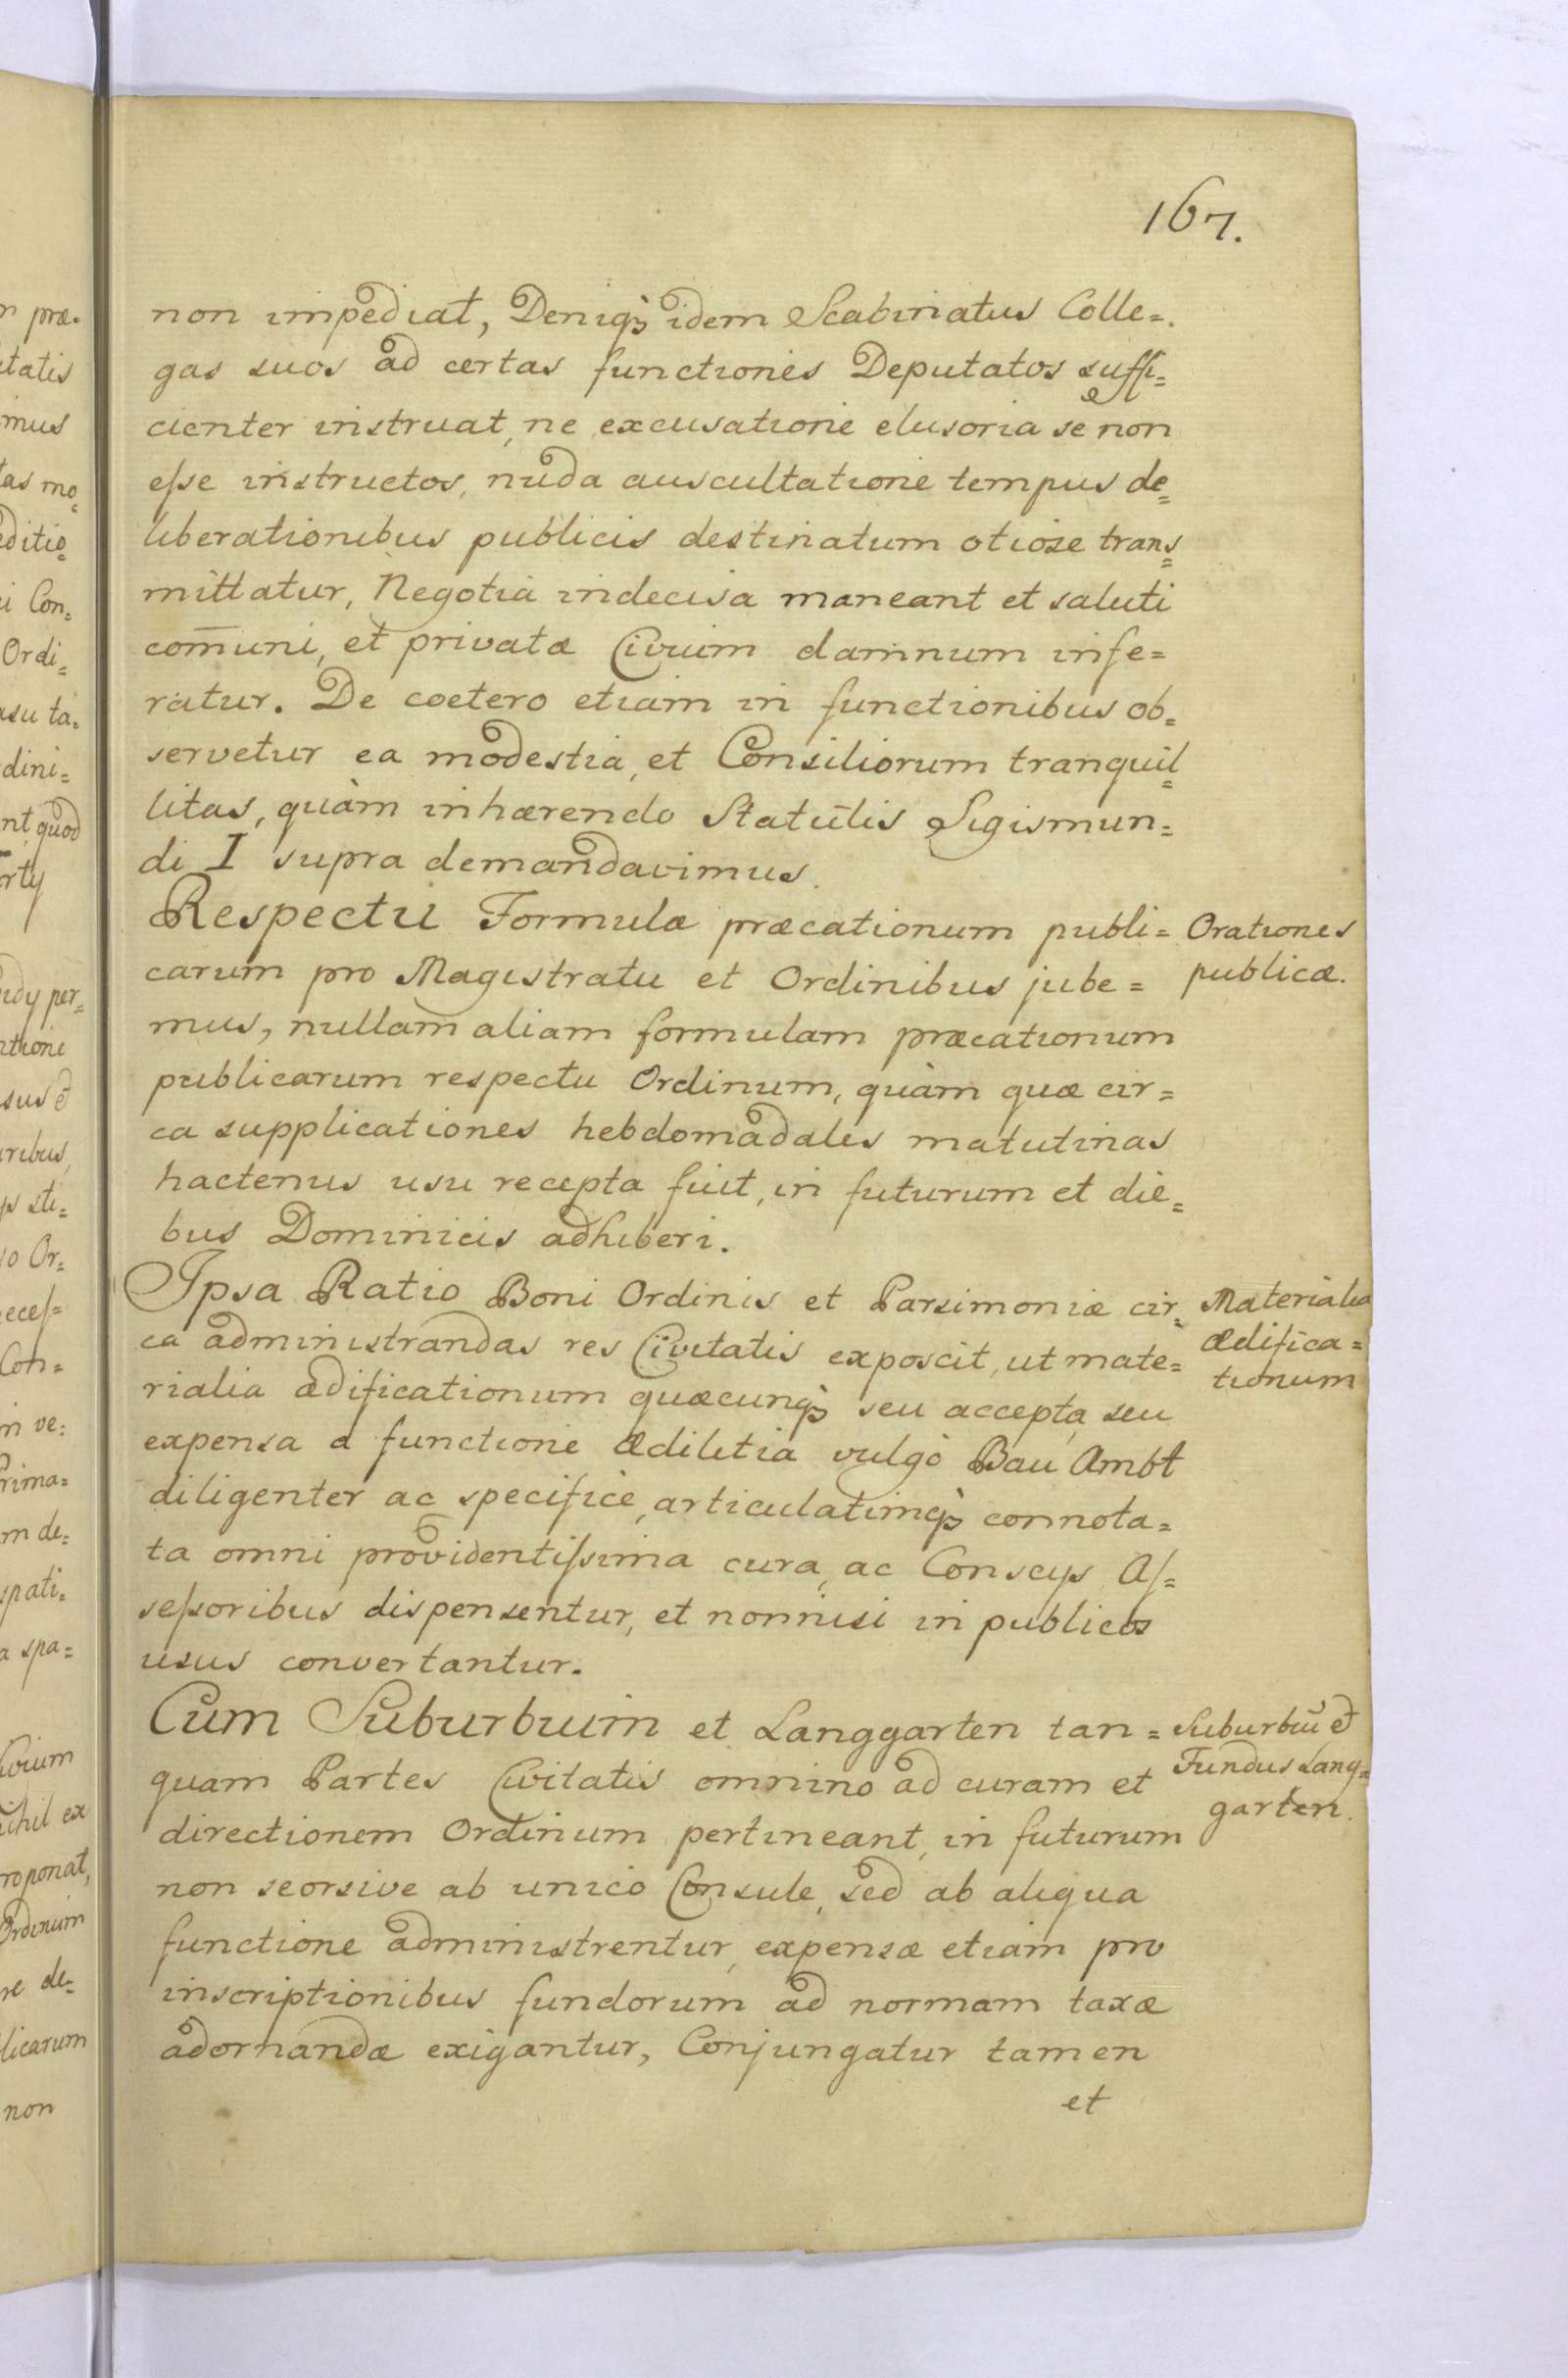 167.
non impediat, Deniq3 idem Scabinatus Colle=
gas suos ad certas functiones Deputatos suffi=
cienter instruat, ne excusatione elusoria se non
esse instructos, nuda auscultatione tempus de=
liberationibus publicis destinatum otiose trans=
mittatur, Negotia indecisa maneant et saluti
com̄uni, et privatæ Civium damnum infe=
ratur. De coetero etiam in functionibus ob=
servetur ea modestia, et Consiliorum tranquil=
litas, quàm inhærendo Statutis Sigismun=
di I supra demandavimus.
Respectu Formulæ præcationum publi=
carum pro Magistratu et Ordinibus jube=
mus, nullam aliam formulam præcationum
publicarum respectu Ordinum, quàm quæ cir=
ca supplicationes hebdomadales matutinas
hactenus usu recepta fuit, in futurum et die=
bus Dominicis adhiberi.
Orationes
publicæ.
Ipsa Ratio Boni Ordinis et Parsimoniæ cir=
ca administrandas res Civitatis exposcit, ut mate=
rialia ædificationum quæcunq3 seu accepta, seu
expensa a functione ædilitia vulgò Bau Ambt
diligenter ac specifice, articulatimq3 connota=
ta omni providentissima cura, ac Conscys As=
sessoribus dispensentur, et nonnisi in publicos
usus convertantur.
Materialia
ædifica=
tionum
Cum Suburbium et Langgarten tan=
quam Partes Civitatis omnino ad curam et
directionem Ordinum pertineant, in futurum
non seorsive ab unico Consule, sed ab aliqua
functione administrentur, expensæ etiam pro
inscriptionibus fundorum ad normam taxæ
adornandæ exigantur, Conjungatur tamen
et
Suburbiū et
Fundus Lang=
garten.